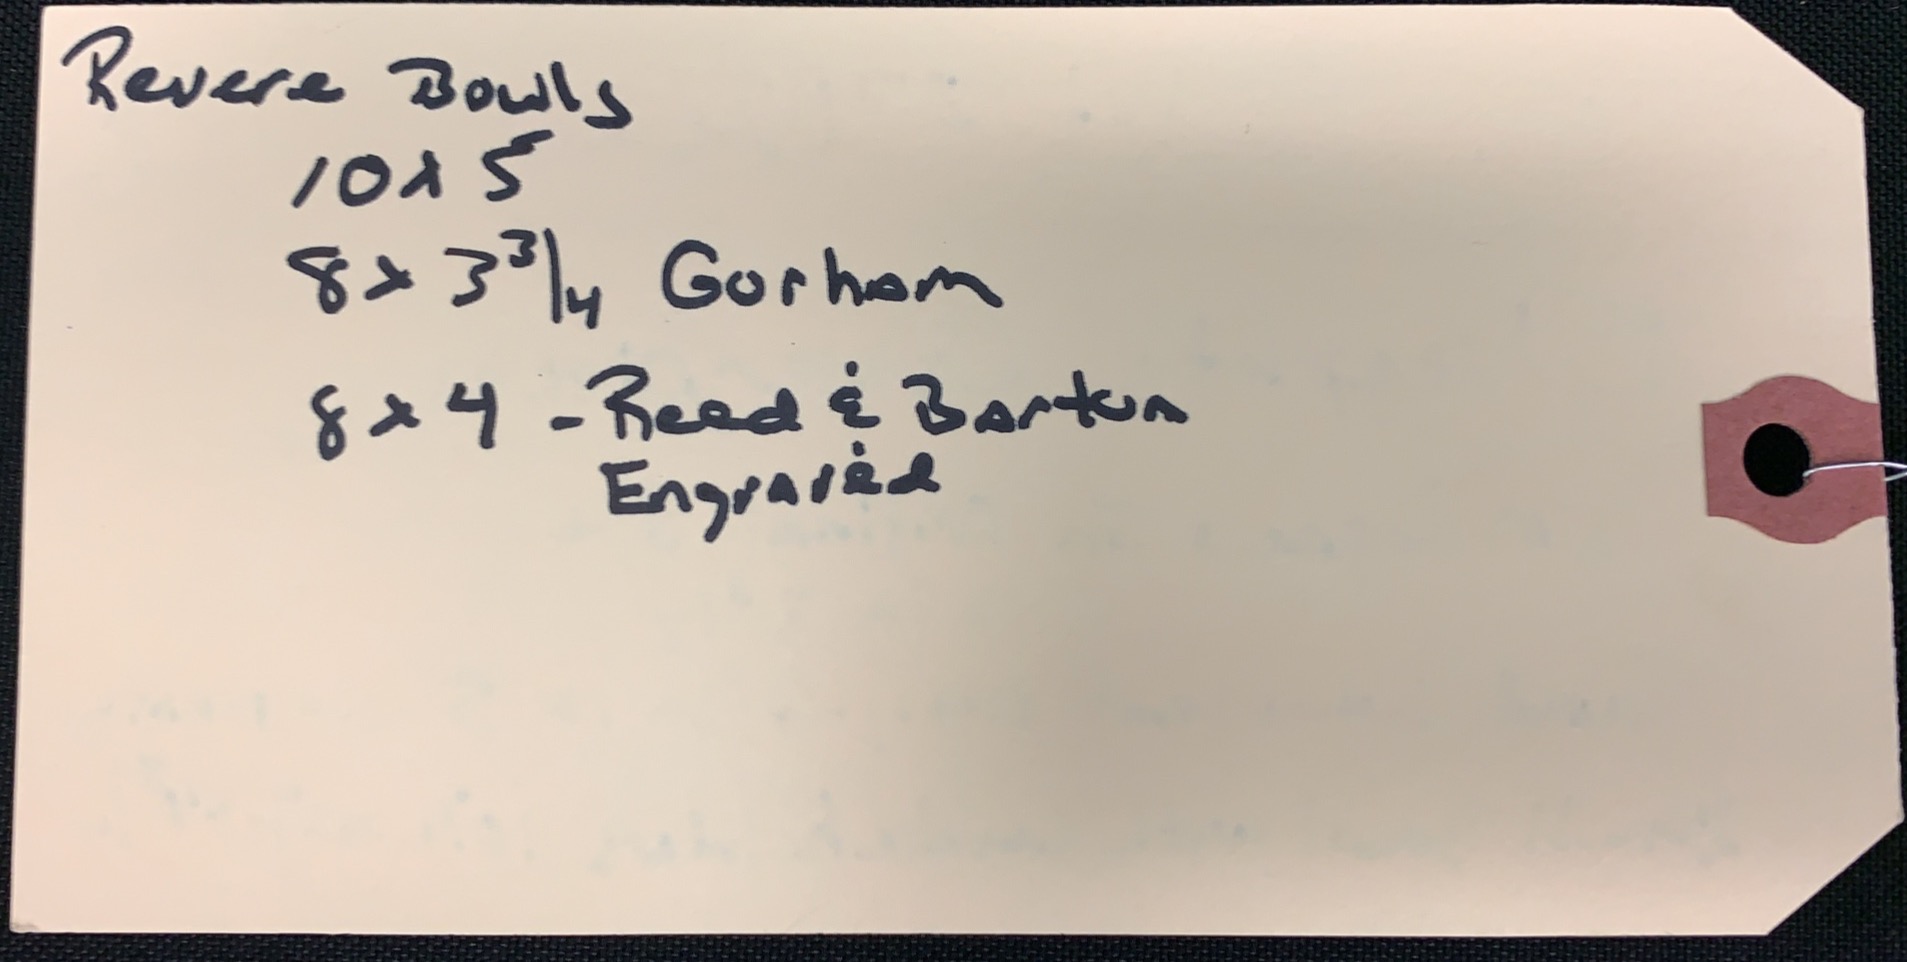 Revere Bowls
10 x 5
8 x 3 3/4 Gorham
8 x 4 - Reed & Barton
Engraved